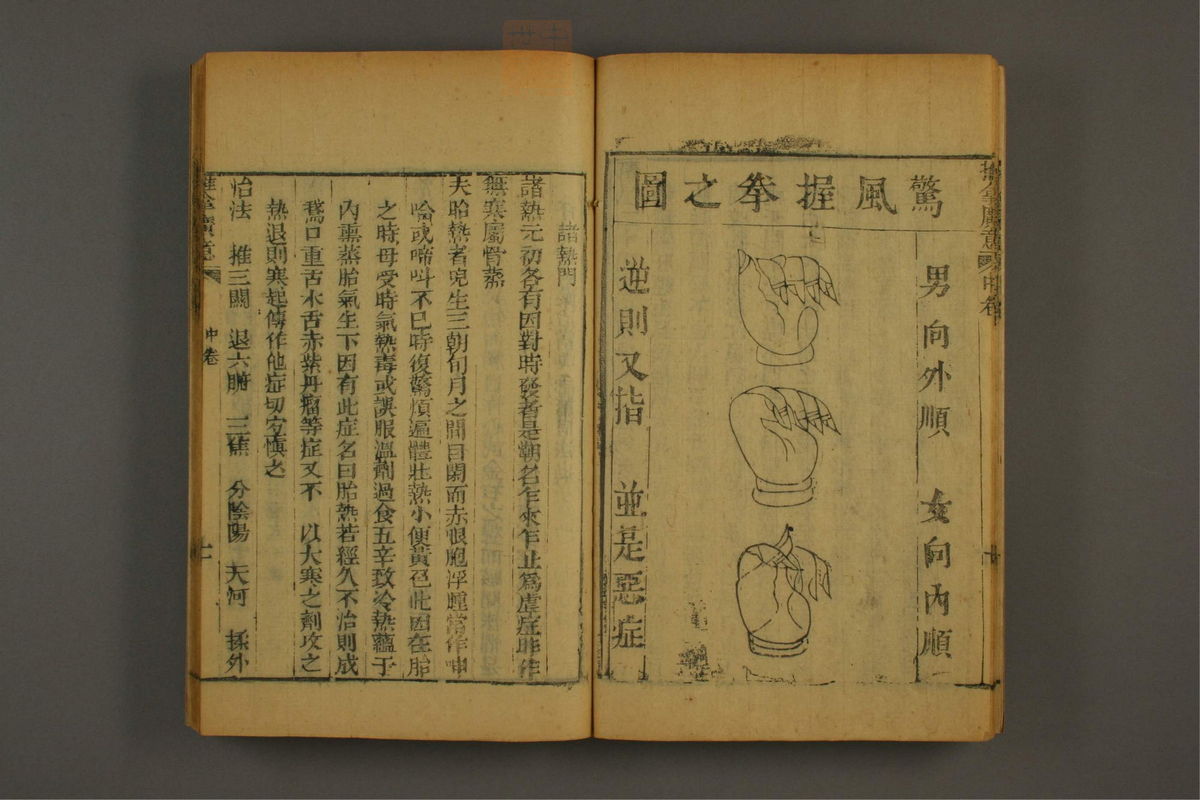 驚風握拳之圖
男向外順　女向內順
逆則叉指　並是惡症
推拿廣意
中卷
十
諸熱門
諸熱元初各有因對時發者是潮名乍來乍止爲虛症昨作
無寒屬骨蒸
夫胎熱者兒生三朝旬月之間目閉而赤眼胞浮腫常作呻
唫或啼叫不已時復驚煩遍體壯熱小便黃色此因在胎
之時母受時氣熱毒或誤服溫劑過食五辛致冷熱蘊于
內熏蒸胎氣生下因有此症名曰胎熱若經久不治則成
鵞口重舌木舌赤紫丹瘤等症又不　以大寒之劑攻之
熱退則寒起傳作他症切宜慎之
治法　推三關　退六腑　三焦　分陰陽　天河　揉外
推拿廣意
中卷
十一